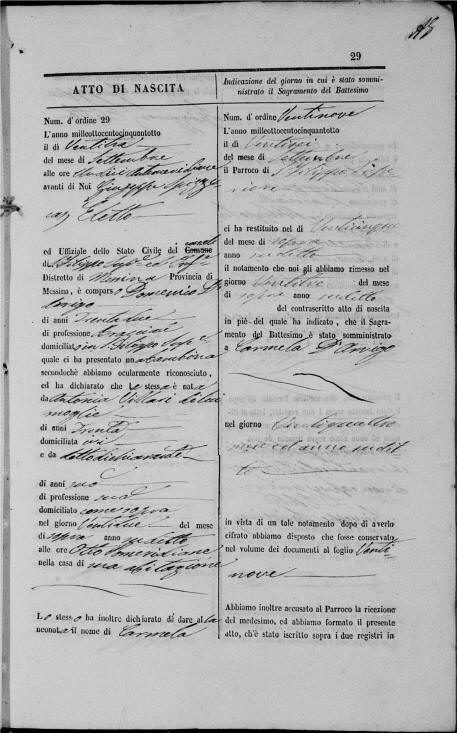 29
ATTO DI NASCITA
Num. d'ordine 29
L'anno milleottocentocinquantotto
il dì Ventitre
del mese di Settembre
alle ore antimeridiane
avanti di Noi Giuseppe
Eletto
ed Uffiziale dello Stato Civile del Comune
di
Distretto di Messina Provincia di
Messina, è comparso Domenico D'
Arrigo
di anni Trentadue
di professione
domiciliato in S. Filippo Sup. e
quale ci ha presentato una bambina
secondochè abbiamo ocularmente riconosciuto,
ed ha dichiarato che la stessa è nata
da Antonia Villari di lui
moglie
di anni Trenta
domiciliata ivi
e da detto dichiarante
di anni suo
di professione sua
domiciliato come sopra
nel giorno Ventidue del mese
di sopra anno suddetto
alle ore Otto pomeridiane
nella casa di sua abitazione
Lo stesso ha inoltre dichiarato di dare alla
neonata il nome di Carmela
Indicazione del giorno in cui è stato somministrato
il Sagramento del Battesimo
Num. d'ordine Ventinove
L'anno milleottocentocinquantotto
il dì
del mese di Settembre
il Parroco di S. Filippo Superiore
ci ha restituito nel dì Venticinque
del mese di sopra
anno suddetto
il notamento che noi gli abbiamo rimesso nel
giorno Ventitre del mese
di sopra anno suddetto
del contrascritto atto di nascita
in piè del quale ha indicato, che il Sagramento
del Battesimo è stato somministrato
a Carmela D'Arrigo
nel giorno Ventiquattro
mese ed anno suddetto
in vista di un tale notamento dopo di averlo
cifrato abbiamo disposto che fosse conservato
nel volume dei documenti al foglio Ventinove
Abbiamo inoltre accusato al Parroco la ricezione
del medesimo, ed abbiamo formato il presente
atto, ch'è stato iscritto sopra i due registri in